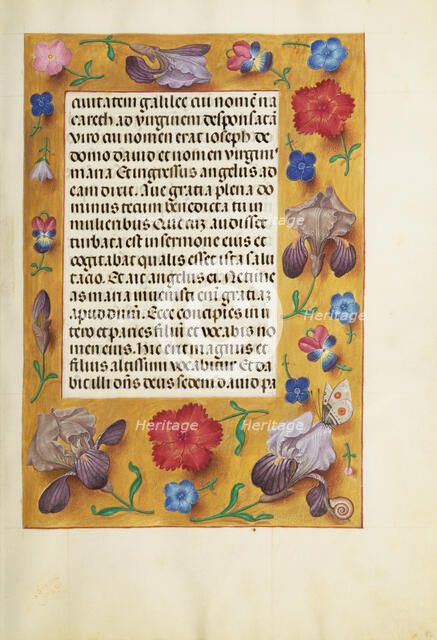 ciuitatem galilee cui nomen na
careth ad virginem desponsatā
viro cui nomen erat ioseph de
domo dauid et nomen virginis
maria Et ingressus angelus ad
eam dixit. Aue gratia plena do
minus tecum benedicta tu in
mulieribus Que cū audisset
turbata est in sermone eius et
cogitabat qualis esset ista salu
tacio. Et ait angelus ei. Ne time
as maria inuenisti eni gratiā
apud dnūm. Ecce concipies in v
tero et paries filiū et vocabis no
men eius. Hic erit magnus et
filius altissimi vocabitur Et da
bit illi dn̄s deus sedem dauid pa
Heritage
Heritage
Heritage
Heritage